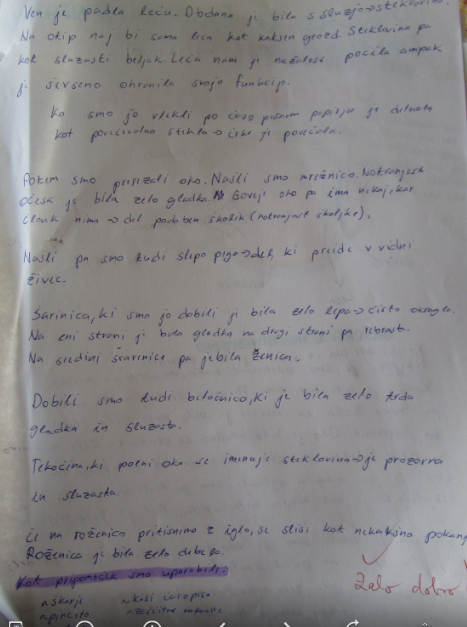 Ven je padla leča. Obdana je bila s sluzjo → steklovino.
Na otip naj bi sama leča kot kakšen grozd. Steklovina pa
kot sluzasti beljak. Leča nam je nažalost počila ampak
je še vseno ohranila svojo funkcijo.
Ko smo jo vlekli po časopisnem papirju je delovala
kot povečevalno steklo → črke je povečala.
Potem smo prerezali oko. Našli smo mrežnico. Notranjost
očesa je bila zelo gladka. Goveje oko pa ima nekaj, kar
človk nima → del podoben školjk (notranjost školjke).
Našli pa smo tudi slepo pego → del, ki preide v vidni
živec.
Šarinica, ki smo jo dobili je bila zelo lepa → čisto okrogla.
Na eni strani je bila gladka na drugi strani pa rebrasta.
Na sredini šarenice pa je bila zenica.
Dobili smo tudi beločnico, ki je bila zelo trda
gladka in sluzasta.
Tekočina, ki polni oko se imenuje steklovina → je prozorna
in sluzasta.
Če na roženico pritisnemo z iglo, se sliši kot nekakšno pokanje
Roženica je bila zelo debela.
Kot pripomoček smo uporabili:
~ škarje ~ kosi časopisa
~ pinceto ~ zaščitne rokavice
Zelo dobro